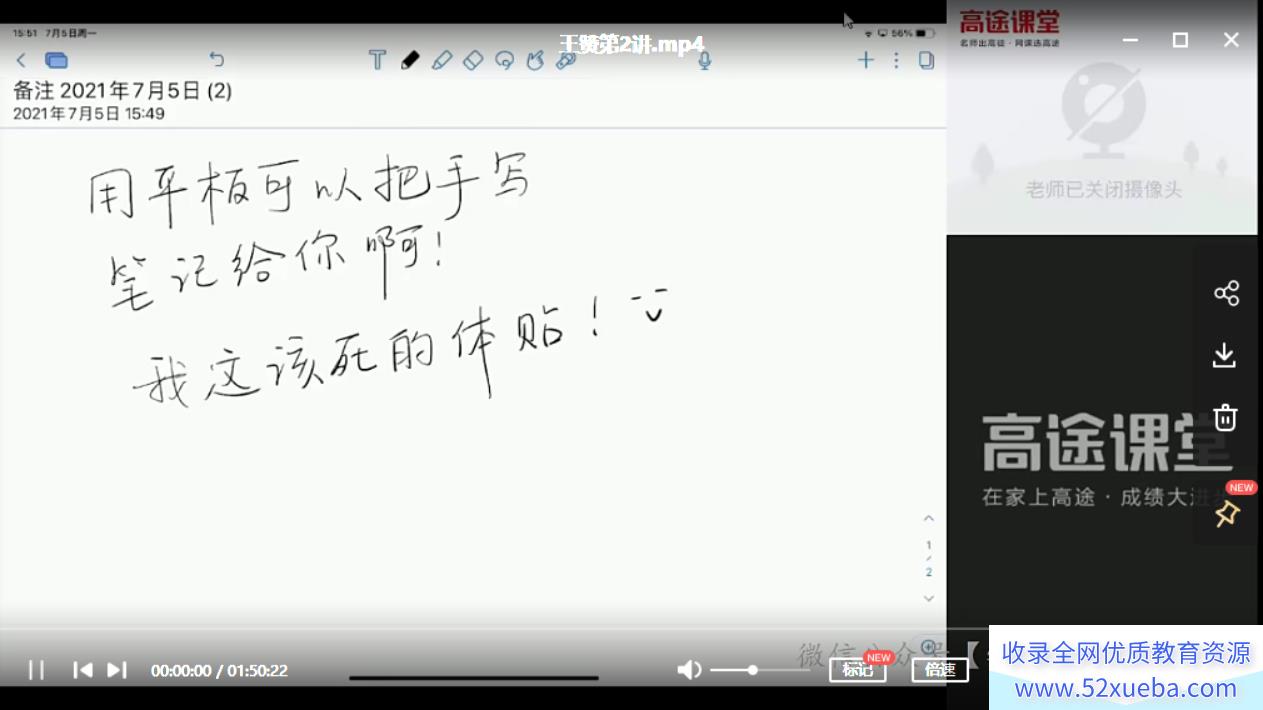 15:51 7月5日周一
56%
王赞第2讲.mp4
备注 2021年7月5日 (2)
2021年7月5日 15:49
用平板可以把手写
笔记给你啊!
我这该死的体贴!
1
2
高途课堂
名师出高徒·网课选高途
老师已关闭摄像头
高途课堂
在家上高途·成绩大进步
NEW
00:00:00 / 01:50:22
微信公众号【
NEW
标记
倍速
收录全网优质教育资源
www.52xueba.com